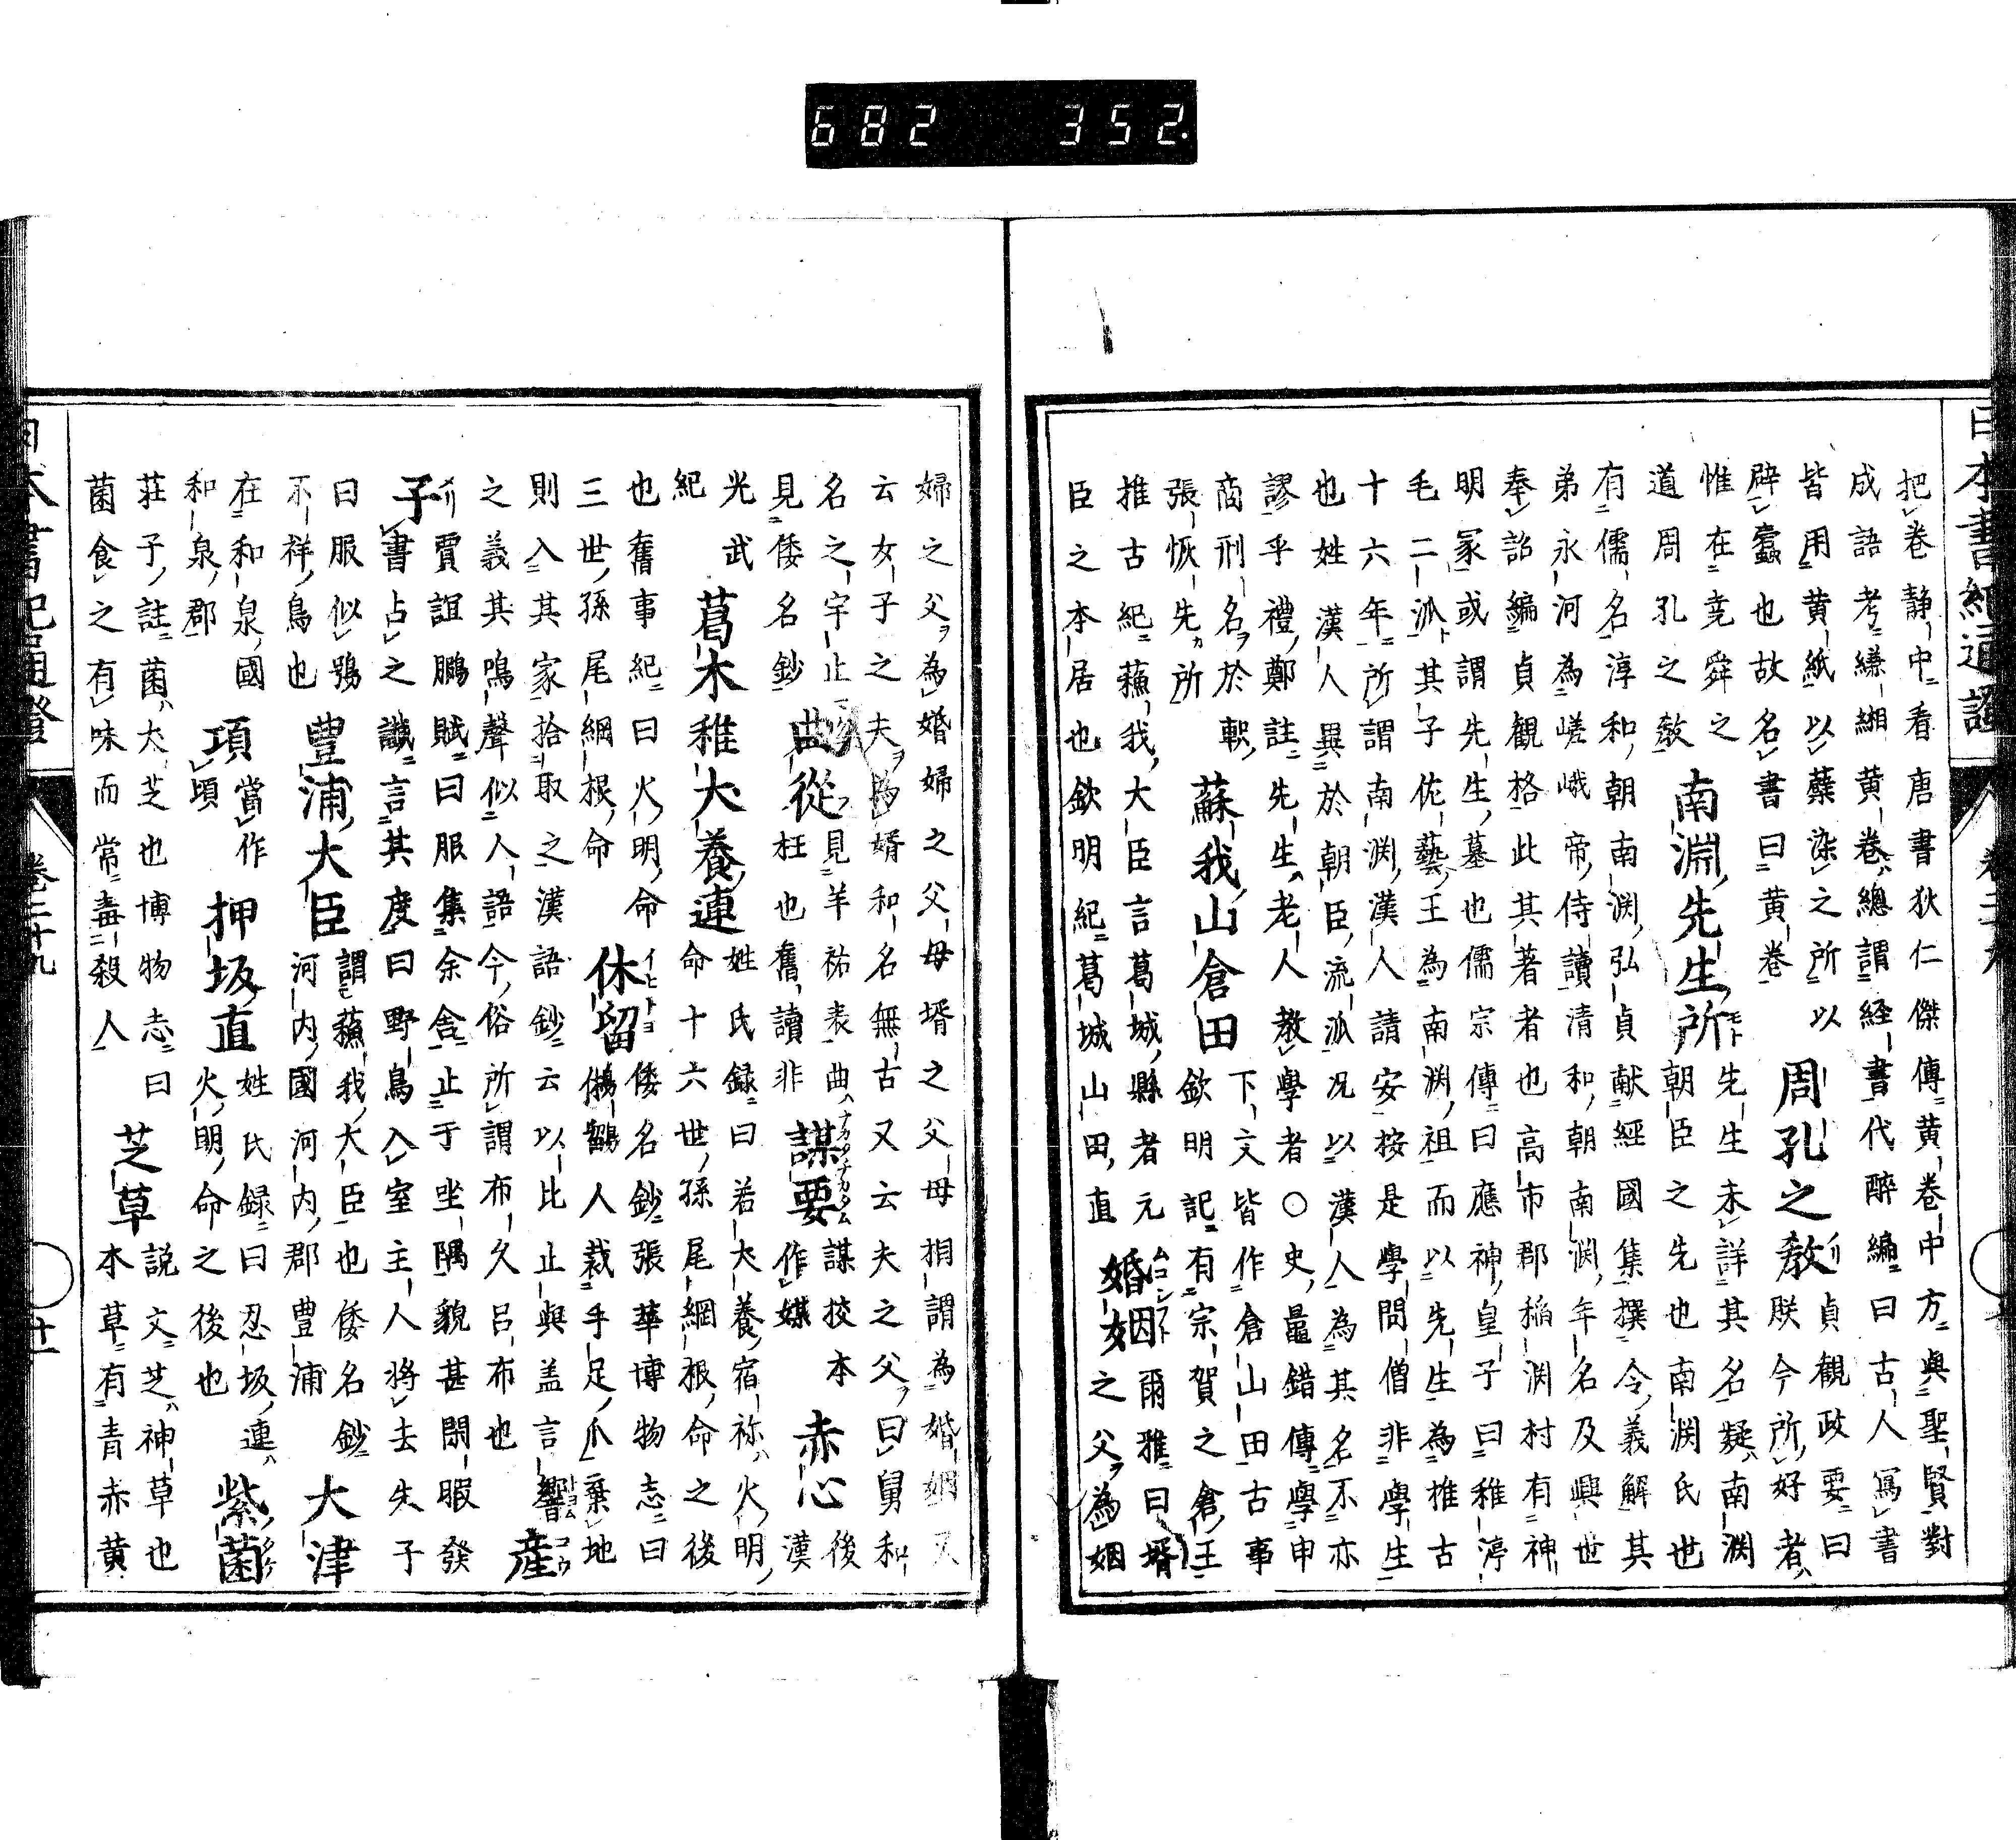 日本書紀通證
把卷静中看唐書狄仁傑傳黄卷中方與聖賢對
成語考縑緗黄卷總謂経書代醉編曰古人寫書
皆用黄紙以蘗染之所以
辟蠧也故名書曰黄卷
周孔之教
貞観政要曰
朕今所好者
惟在堯舜之
道周孔之教
南淵先生所
先生未詳其名疑南渕
朝臣之先也南渕氏世
有儒名淳和朝南渕弘貞献經國集撰令義解其
弟永河為嵯峨帝侍讀清和朝南渕年名及興世
奉詔編貞観格此其著者也高市郡稲渕村有神
明冢或謂先生墓也儒宗傳曰應神皇子曰稚渟
毛二派其子佐藝王為南渕祖而以先生為推古
十六年所謂南渕漢人請安按是學問僧非學生
也姓漢人異於朝臣流派况以漢人為其名不亦
謬乎禮鄭註先生老人教學者〇史鼂錯傳學申
商刑名於軹
張恢先所
蘇我山倉田
下文皆作倉山田古事
欽明記有宗賀之倉王
推古紀蘓我大臣言葛城縣者元
臣之本居也欽明紀葛城山田直
婚姻
爾雅曰壻
之父為姻
婦之父為婚婦之父母壻之父母相謂為婚姻又
云女子之夫為婿和名無古又云夫之父曰舅和
名之宇止
見倭名鈔
曲從
見羊祜表曲
枉也舊讀非
謀要
謀挍本
作媒
赤心
後
漢
光武
紀
葛木稚犬養連
姓氏録曰若犬養宿祢火明
命十六世孫尾綱根命之後
也舊事紀曰火明命
三世孫尾綱根命
休留
倭名鈔張華博物志曰
鵂鶹人裁手足爪棄地
則入其家拾取之漢語鈔云以比止與盖言響
之義其鳴聲似人語今俗所謂布久呂布也
産
子
賈誼鵬賦曰服集余舎止于坐隅貌甚閑暇發
書占之讖言其度曰野鳥入室主人将去朱子
曰服似鴞
不祥鳥也
豊浦大臣
謂蘓我大臣也倭名鈔
河内國河内郡豊浦
大津
在和泉國
和泉郡
項
當作
頃
押坂直
姓氏録曰忍坂連
火明命之後也
紫菌
荘子註菌大芝也博物志曰
菌食之有味而常毒殺人
芝草
説文芝神草也
本草有青赤黄
日本書紀通證
卷二十九
十一
682 352.